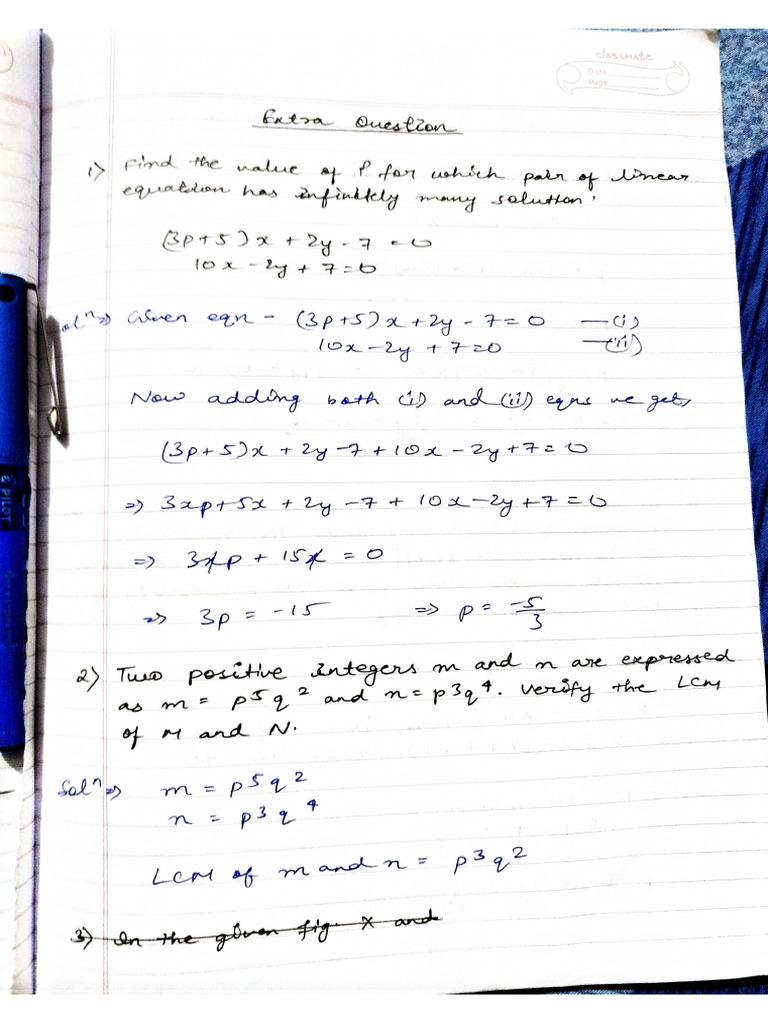 classmate
Date
Page
Extra Question
1) Find the value of P for which pair of linear
equation has infinitely many solution.
(3p+5)x + 2y - 7 = 0
10x - 2y + 7 = 0
Solⁿ⇒ Given eqn - (3p+5)x + 2y - 7 = 0 —(i)
10x - 2y + 7 = 0 —(ii)
Now adding both (i) and (ii) eqns we get,
(3p+5)x + 2y - 7 + 10x - 2y + 7 = 0
⇒ 3xp + 5x + 2y - 7 + 10x - 2y + 7 = 0
⇒ 3xp + 15x = 0
⇒ 3p = -15 ⇒ p = -5/3
2) Two positive integers m and n are expressed
as m = p⁵q² and n = p3q⁴. Verify the LCM
of M and N.
Solⁿ⇒ m = p⁵q²
n = p³q⁴
LCM of m and n = p³q²
3) In the given fig. X and
PILOT